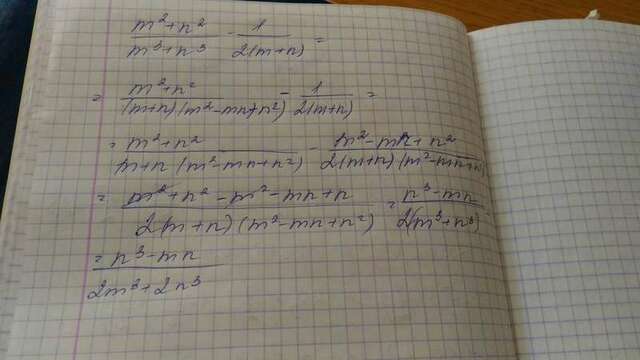 (m²+n²)/(m³+n³) - 1/(2(m+n)) =
= (m²+n²)/((m+n)(m²-mn+n²)) - 1/(2(m+n)) =
= (m²+n²)/(m+n (m²-mn+n²)) - (m²-mn+n²)/(2(m+n)(m²-mn+n²))
= (m²+n²-m²-mn+n)/(2(m+n)(m²-mn+n²)) = (n³-mn)/(2(m³+n³))
= (n³-mn)/(2m³+2n³)